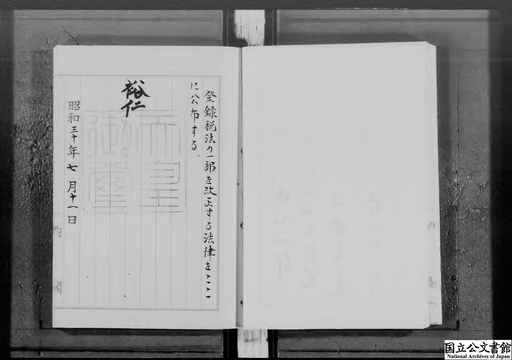 登録税法の一部を改正する法律をここ
に公布する。
裕仁
天皇
御璽
昭和三十年七月十一日
国立公文書館
National Archives of Japan